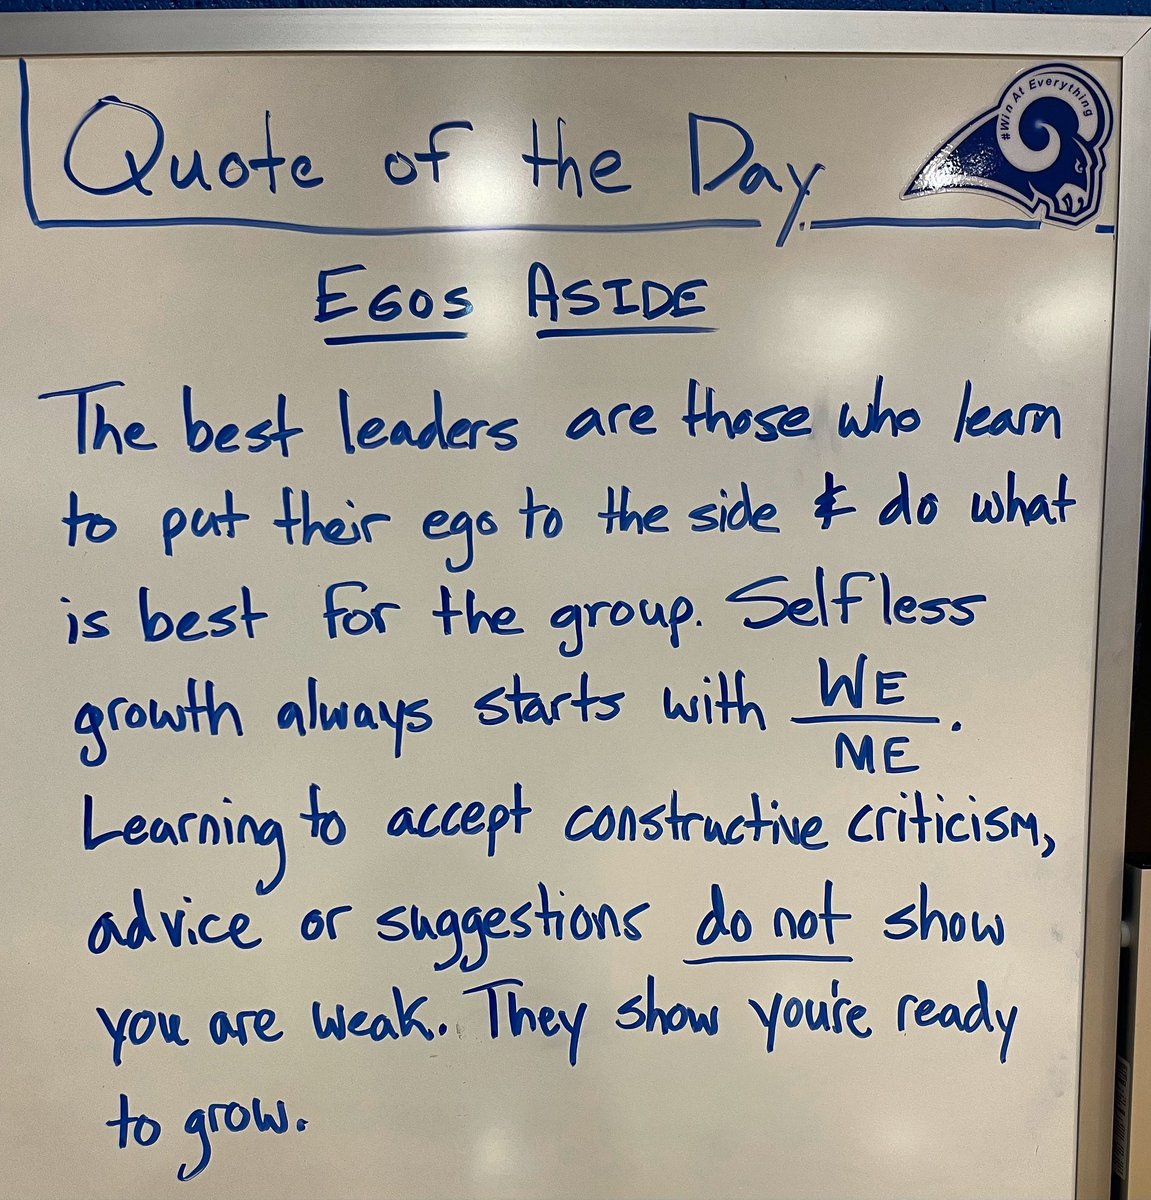 Quote of the Day.
#Win At Everything
EGOS ASIDE
The best leaders are those who learn
to put their ego to the side & do what
is best for the group. Selfless
growth always starts with WE
ME.
Learning to accept constructive criticism,
advice or suggestions do not show
you are weak. They show you're ready
to grow.